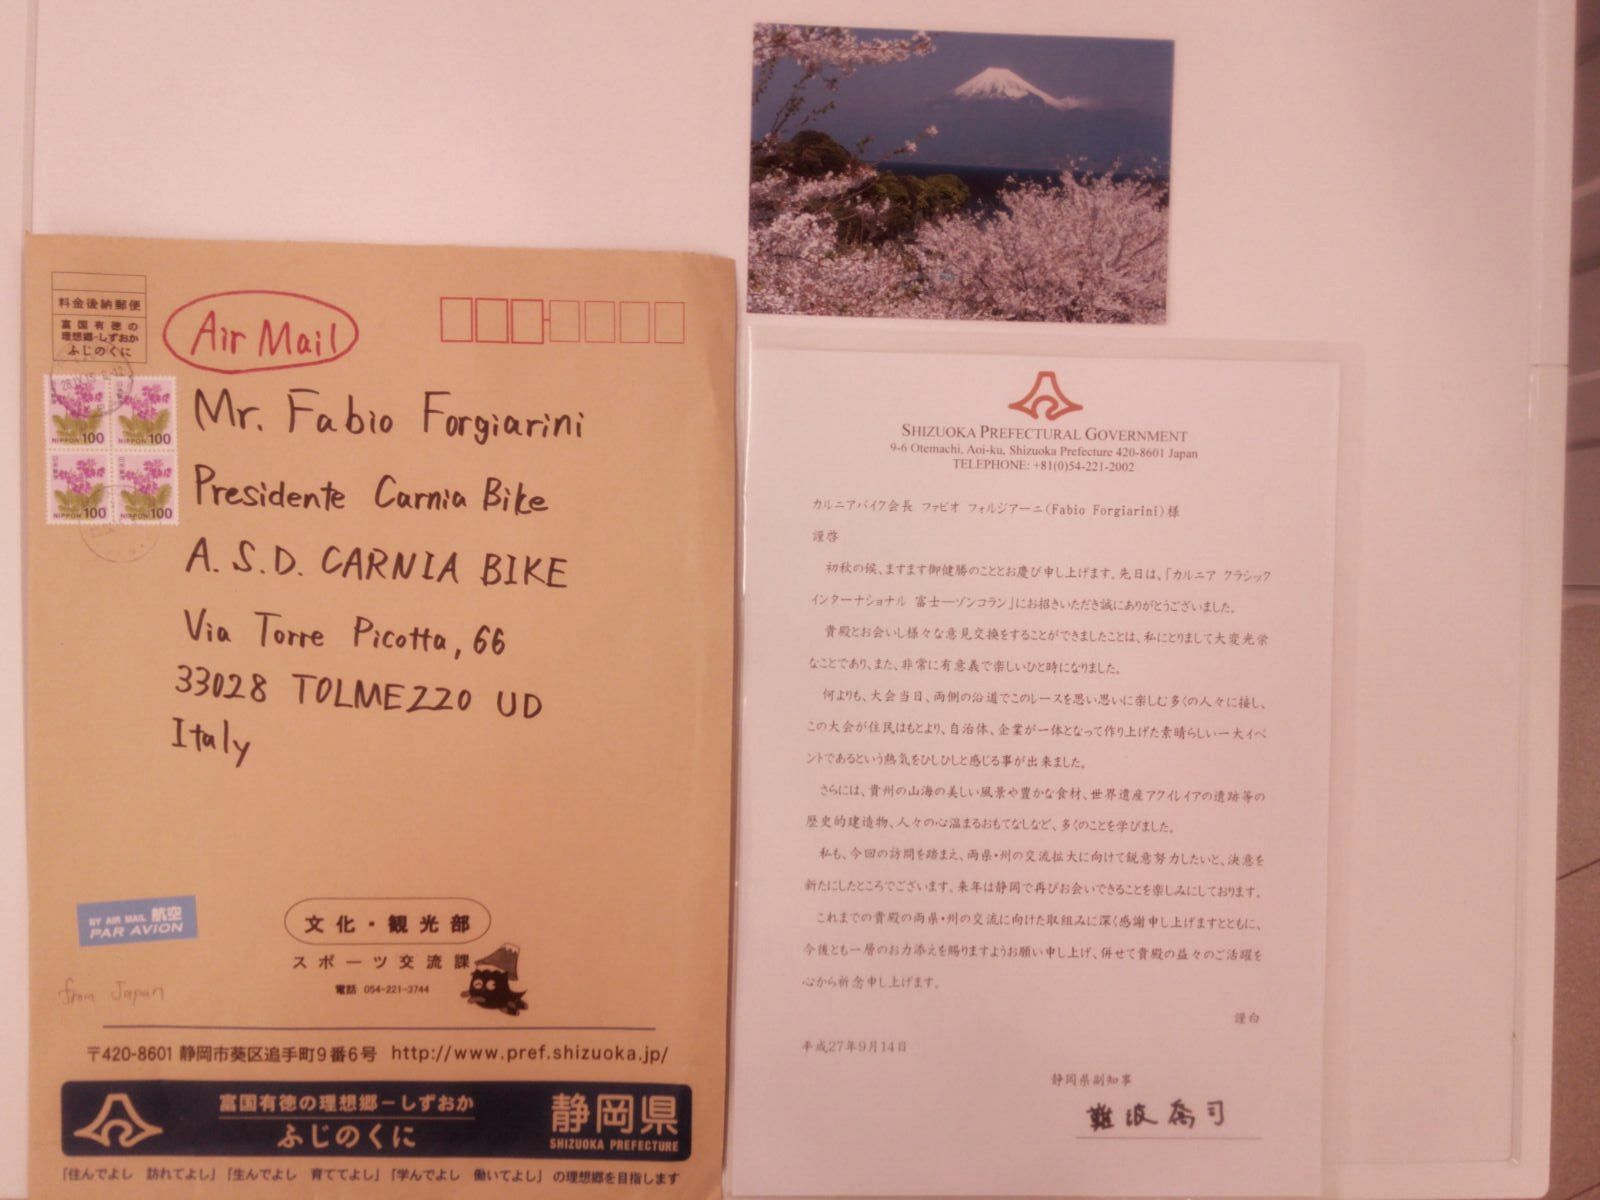 料金後納郵便
富国有徳の
理想郷-しずおか
ふじのくに
Air Mail
NIPPON 100
NIPPON 100
NIPPON 100
NIPPON 100
Mr. Fabio Forgiarini
Presidente Carnia Bike
A.S.D. CARNIA BIKE
Via Torre Picotta, 66
33028 TOLMEZZO UD
Italy
BY AIR MAIL 航空
PAR AVION
from Japan
文化・観光部
スポーツ交流課
電話 054-221-3744
〒420-8601 静岡市葵区追手町9番6号 http://www.pref.shizuoka.jp/
富国有徳の理想郷-しずおか
ふじのくに
静岡県
SHIZUOKA PREFECTURE
「住んでよし 訪れてよし」「生んでよし 育ててよし」「学んでよし 働いてよし」の理想郷を目指します
SHIZUOKA PREFECTURAL GOVERNMENT
9-6 Otemachi, Aoi-ku, Shizuoka Prefecture 420-8601 Japan
TELEPHONE: +81(0)54-221-2002
カルニアバイク会長 ファビオ フォルジアーニ(Fabio Forgiarini)様
謹啓
初秋の候、ますます御健勝のこととお慶び申し上げます。先日は、「カルニア クラシック
インターナショナル 富士―ゾンコラン」にお招きいただき誠にありがとうございました。
貴殿とお会いし様々な意見交換をすることができましたことは、私にとりまして大変光栄
なことであり、また、非常に有意義で楽しいひと時になりました。
何よりも、大会当日、両側の沿道でこのレースを思い思いに楽しむ多くの人々に接し、
この大会が住民はもとより、自治体、企業が一体となって作り上げた素晴らしい一大イベ
ントであるという熱気をひしひしと感じる事が出来ました。
さらには、貴州の山海の美しい風景や豊かな食材、世界遺産アクイレイアの遺跡等の
歴史的建造物、人々の心温まるおもてなしなど、多くのことを学びました。
私も、今回の訪問を踏まえ、両県・州の交流拡大に向けて鋭意努力したいと、決意を
新たにしたところでございます。来年は静岡で再びお会いできることを楽しみにしております。
これまでの貴殿の両県・州の交流に向けた取組みに深く感謝申し上げますとともに、
今後とも一層のお力添えを賜りますようお願い申し上げ、併せて貴殿の益々のご活躍を
心から祈念申し上げます。
謹白
平成27年9月14日
静岡県副知事
難波喬司